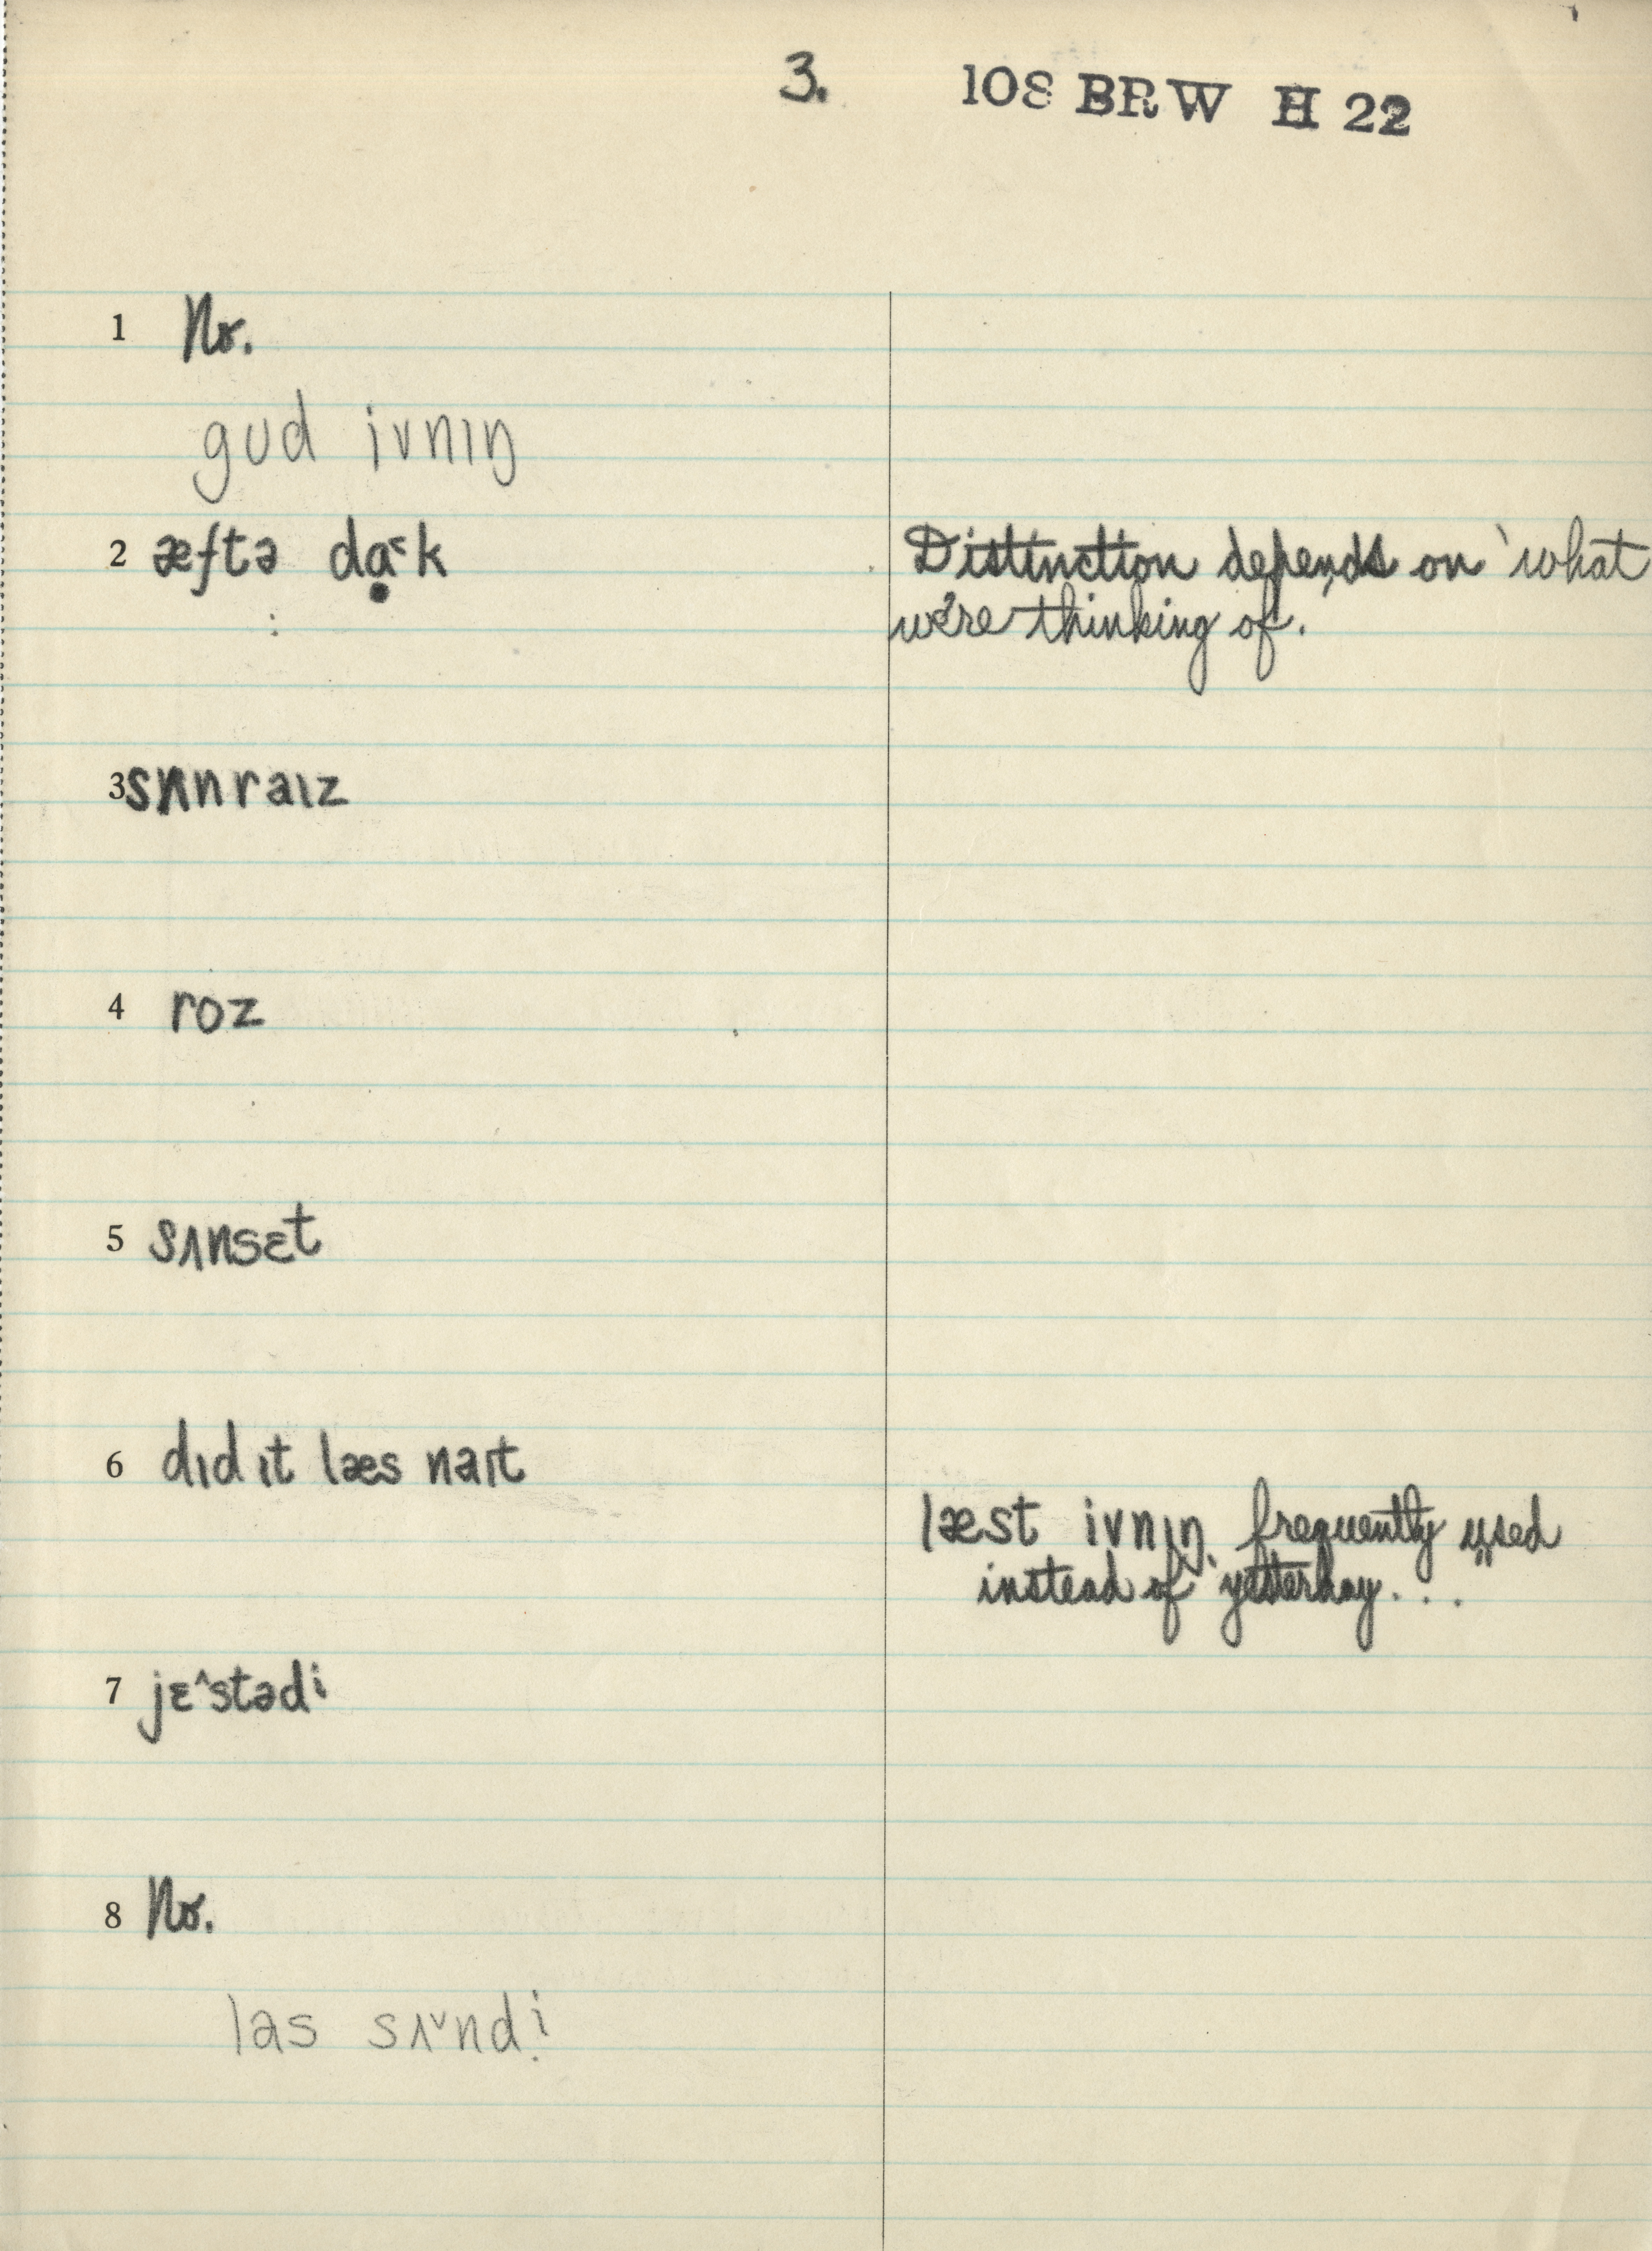 3. 108 BRW H 22
1 No.
gʊd ivnɪŋ
2 æftə dɑ̣˂k Distinction depends on 'what
we're thinking of.
3 sʌnraɪz
4 roz
5 sʌnsɛt
6 dɪd ɪt læs naɪt
læst ivnɪŋ frequently used
instead of "yesterday..."
7 jɛ^stədi
8 No.
las sʌ˅ndị